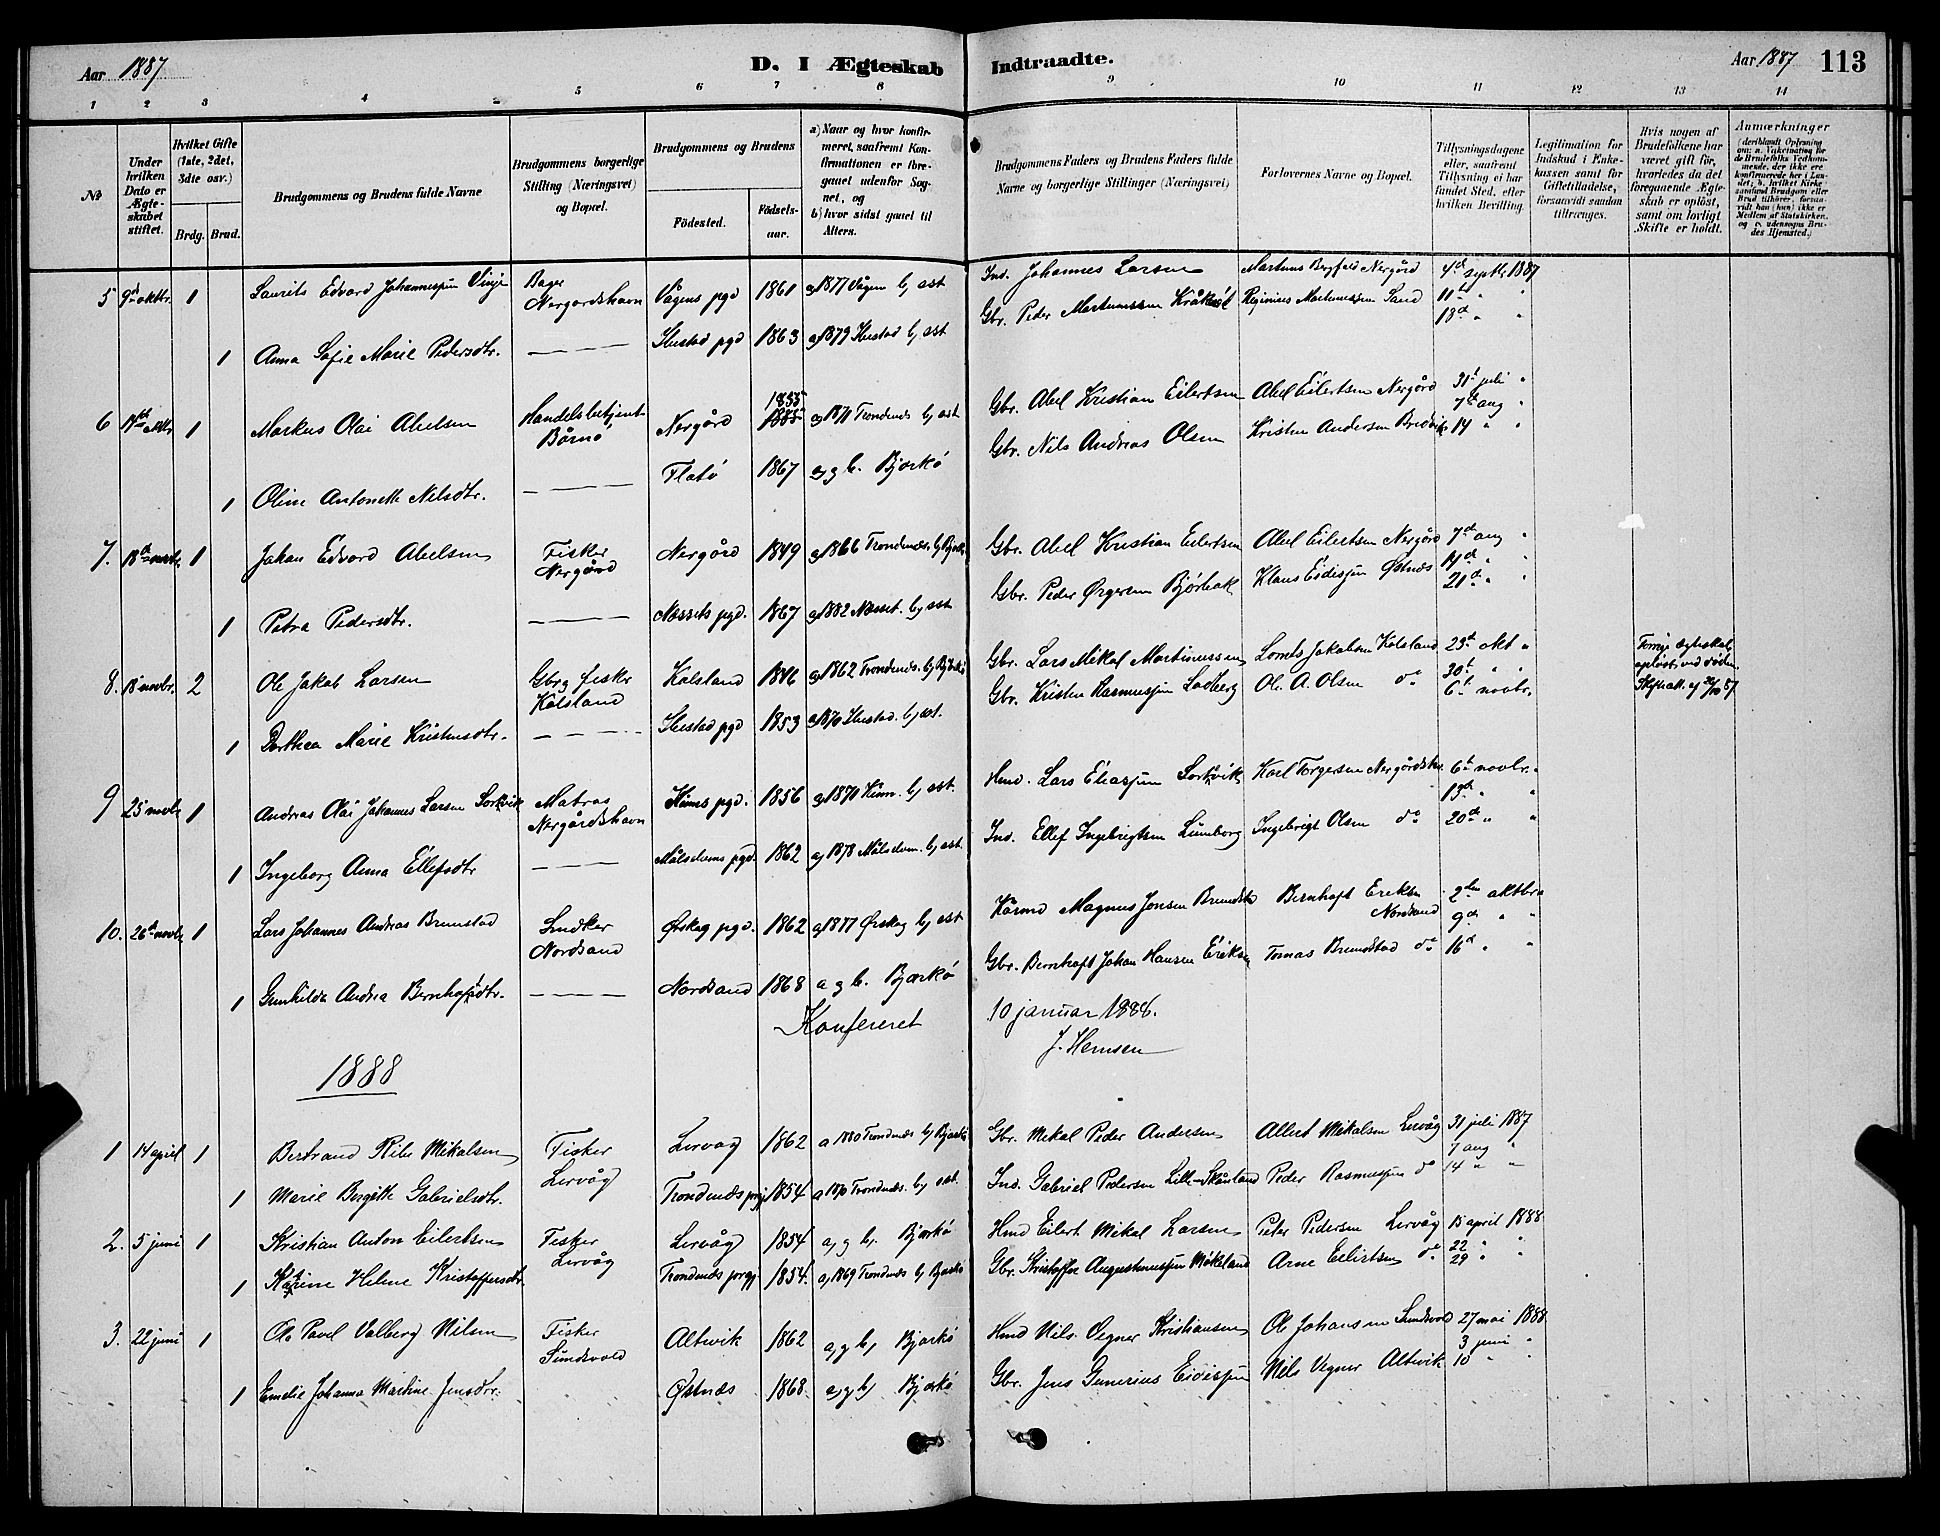 Aar 1887
D. I Ægteskab Indtraadte.
Aar 1887 113
1 2 3 4 5 6 7 8 9 10 11 12 13 14
No
Under hvilken Dato er Ægteskabet stiftet.
Hvilket Gifte (1ste, 2det, 3die osv.)
Brdg. Brud.
Brudgommens og Brudens fulde Navne
Brudgommens borgerlige Stilling (Næringsvei) og Bopæl.
Brudgommens og Brudens
Fødested.
Fødselsaar.
a) Naar og hvor konfirmeret, saafremt Konfirmationen er foregaaet udenfor Sognet, og
b) hvor sidst gaaet til Alters.
Brudgommens Faders og Brudens Faders fulde Navne og borgerlige Stillinger (Næringsvei)
Forlovernes Navne og Bopæl.
Tillysningsdagene eller, saafremt Tillysning ei har fundet Sted, efter hvilken Bevilling.
Legitimation for Indskud i Enkekassen samt for Giftetilladelse, forsaavidt saadan tiltrænges.
Hvis nogen af Brudefolkene har været gift før, hvorledes da det foregaaende Ægteskab er opløst, samt om lovligt Skifte er holdt.
Anmærkninger
5 9d oktbr. 1 Laurits Edvard Johannessen Vinje Bager Nergårdshavn Vågens pgd 1861 a, 1877 Vågen b, sst Ind. Johannes Larsen Martinus Nergård 4d septbr 1887
1 Anna Sofie Marie Pedersdtr. Hustad pgd 1863 a, 1879 Hustad b, sst Gbr. Peder Martinussen Martinussen Sand 11t " "
18d " "
6 1 Markus Olai Abelsen Handelsbetjent Nergård 1855 a, 1870 Trondenes b, sst Gbr. Abel Kristian Eilertsen Abel Eilertsen Nergård 31t juli "
7d aug "
1 Oline Antonette Nilsdtr. Flatø 1867 a, g b. Bjarkø Gbr. Nils Andreas Olsen Kristen Andersen 14 " "
7. 18d novbr. 1 Johan Edvard Abelsen Fisker Nergård Nergård 1849 a, 1866 Trondenæs. b, Bjarkø Gbr. Abel Kristian Eilertsen Abel Eilertsen Nergård 7d aug "
14d " "
1 Petra Pedersdtr. Næssets pgd. 1867 a, 1882 Næsset. b, sst Gbr. Peder Bjørbak Klaus Eidisjen Østnæs 21d " "
8. 18 novbr. 2 Ole Jakob Larsen Gbr g fisker Kolsland Kolsland 1846 a, 1862 Trondenæs. b, Bjarkø Gbr. Lars Mikal Martinussen Jakobsen Kolsland 23d okt " Forrige ægteskab opløst ved døden.
30t " "
1 Dorthea Marie Kristensdtr. Hustad pgd 1853 a, 1870 Hustad. b, sst. Gbr. Kristen Rasmussen Ole A. Olsen do 6t novbr. "
9 25 novbr 1 Andreas Olai Johannes Larsen Sørvik Matros Nergårdshavn Kinns pgd. 1856 a, 1870 Kinn. b, sst. Hmd. Lars Eliassen Sørvik Karl Torgersen Nergårdshn. 6t novbr. "
13d " "
1 Ingeborg Anna Ellefsdtr Målselvens pgd. 1862 a, 1878 Målselven. b, sst. Ind. Ellef Ingebrigtsen Lundberg Ingebrigt Olsen do 20d " "
10. 26d novbr 1 Lars Johannes Andreas Brunstad Snedker Nordsand Ørskog pgd. 1862 a, 1877 Ørskog b, sst Kårmd Magnus Jonsen Brunstad Bernhoft Eriksen Nordsand 2den oktbr "
9d " "
1 Gunhilda Andrea Bernhoftsdtr. Nordsand 1868 a g b. Bjarkø Gbr. Bernhoft Johan Hansen Eriksen Tomas Brunstad do 16d " "
Konfereret 10 januar 1888.
J. Hemsen
1888
1 14 april 1 Bertrand Mikalsen Fisker Lervåg Lervåg 1862 a 1880 Trondenæs b, Bjarkø Gbr. Mekal Peder Andersen Albert Mikalsen Lervåg 31 juli 1887
7 aug "
1 Marie Bergitte Gabrielsdtr. Trondenæs prgj 1854 a 1870 Trondenæs. b, sst. Ind. Gabriel Pedersen Lille-Skånland Peder Rasmussen do 14 " "
2. 5 juni 1 Kristian Anton Eilertsen Fisker Lervåg Lervåg 1854 a, g b. Bjarkø Hmd Eilert Mikal Larsen Peter Pedersen Lervåg 15 april 1888
22 " "
1 Karine Helene Kristoffersdtr. Trondenæs prgj 1854. a, 1869 Trondenæs b, Bjarkø Gbr. Kristoffer Augustinussen Møkeland Arne Eilertsen do 29
3. 22 juni 1 Ole Pavel Valberg Nilsen Fisker Sundsvold Altevik 1862 a, g b, Bjarkø Hmd Nils Vegner Kristiansen Ole Johansen Sundsvold 27 mai 1888
3 juni "
1 Emelie Johanna Martine Jensdtr. Østnæs 1868. a, g b, Bjarkø Gbr. Jens Gunerius Eidissen Nils Vegner Altevik 10 " "